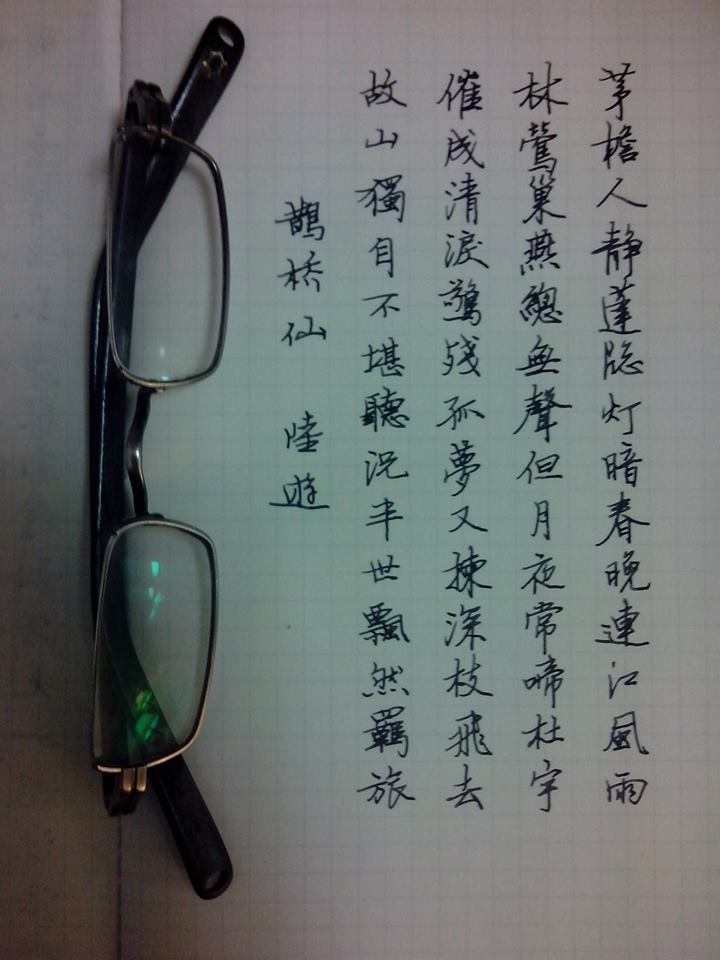 茅檐人静蓬牕灯暗春晚連江風雨
林鶯巢燕總無聲但月夜常啼杜宇
催成清淚驚殘孤夢又揀深枝飛去
故山獨自不堪聽況半世飄然羈旅
鵲橋仙 陸遊